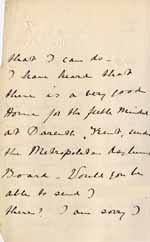 that I can do -
I have heard that
there is a very good
Home for the feeble minded
at Darenth, Kent, under
the Metropolitan Asylums
Board - Would you be
able to send
there? I am sorry